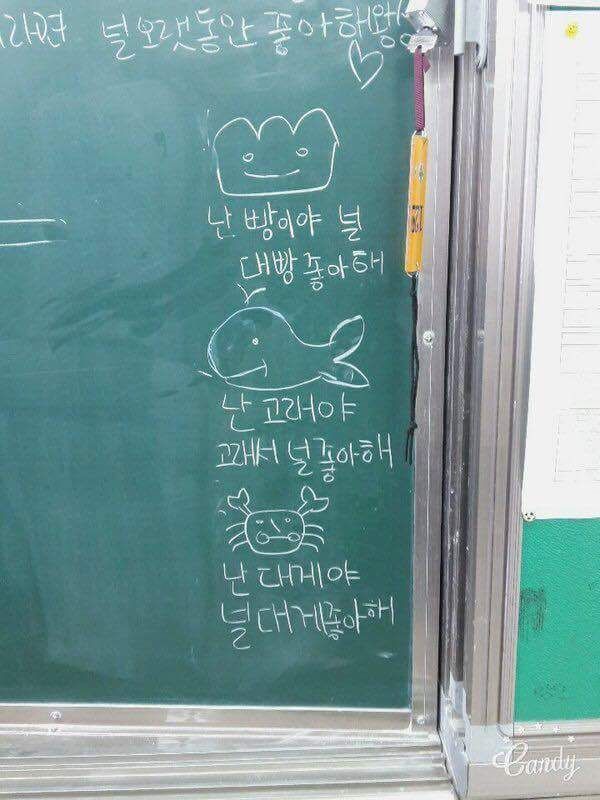 널 오랫동안 좋아해왕
난 빵이야 널
대빵 좋아해
난 고래야
고래서 널 좋아해
난 대게야
널 대게 좋아해
Candy